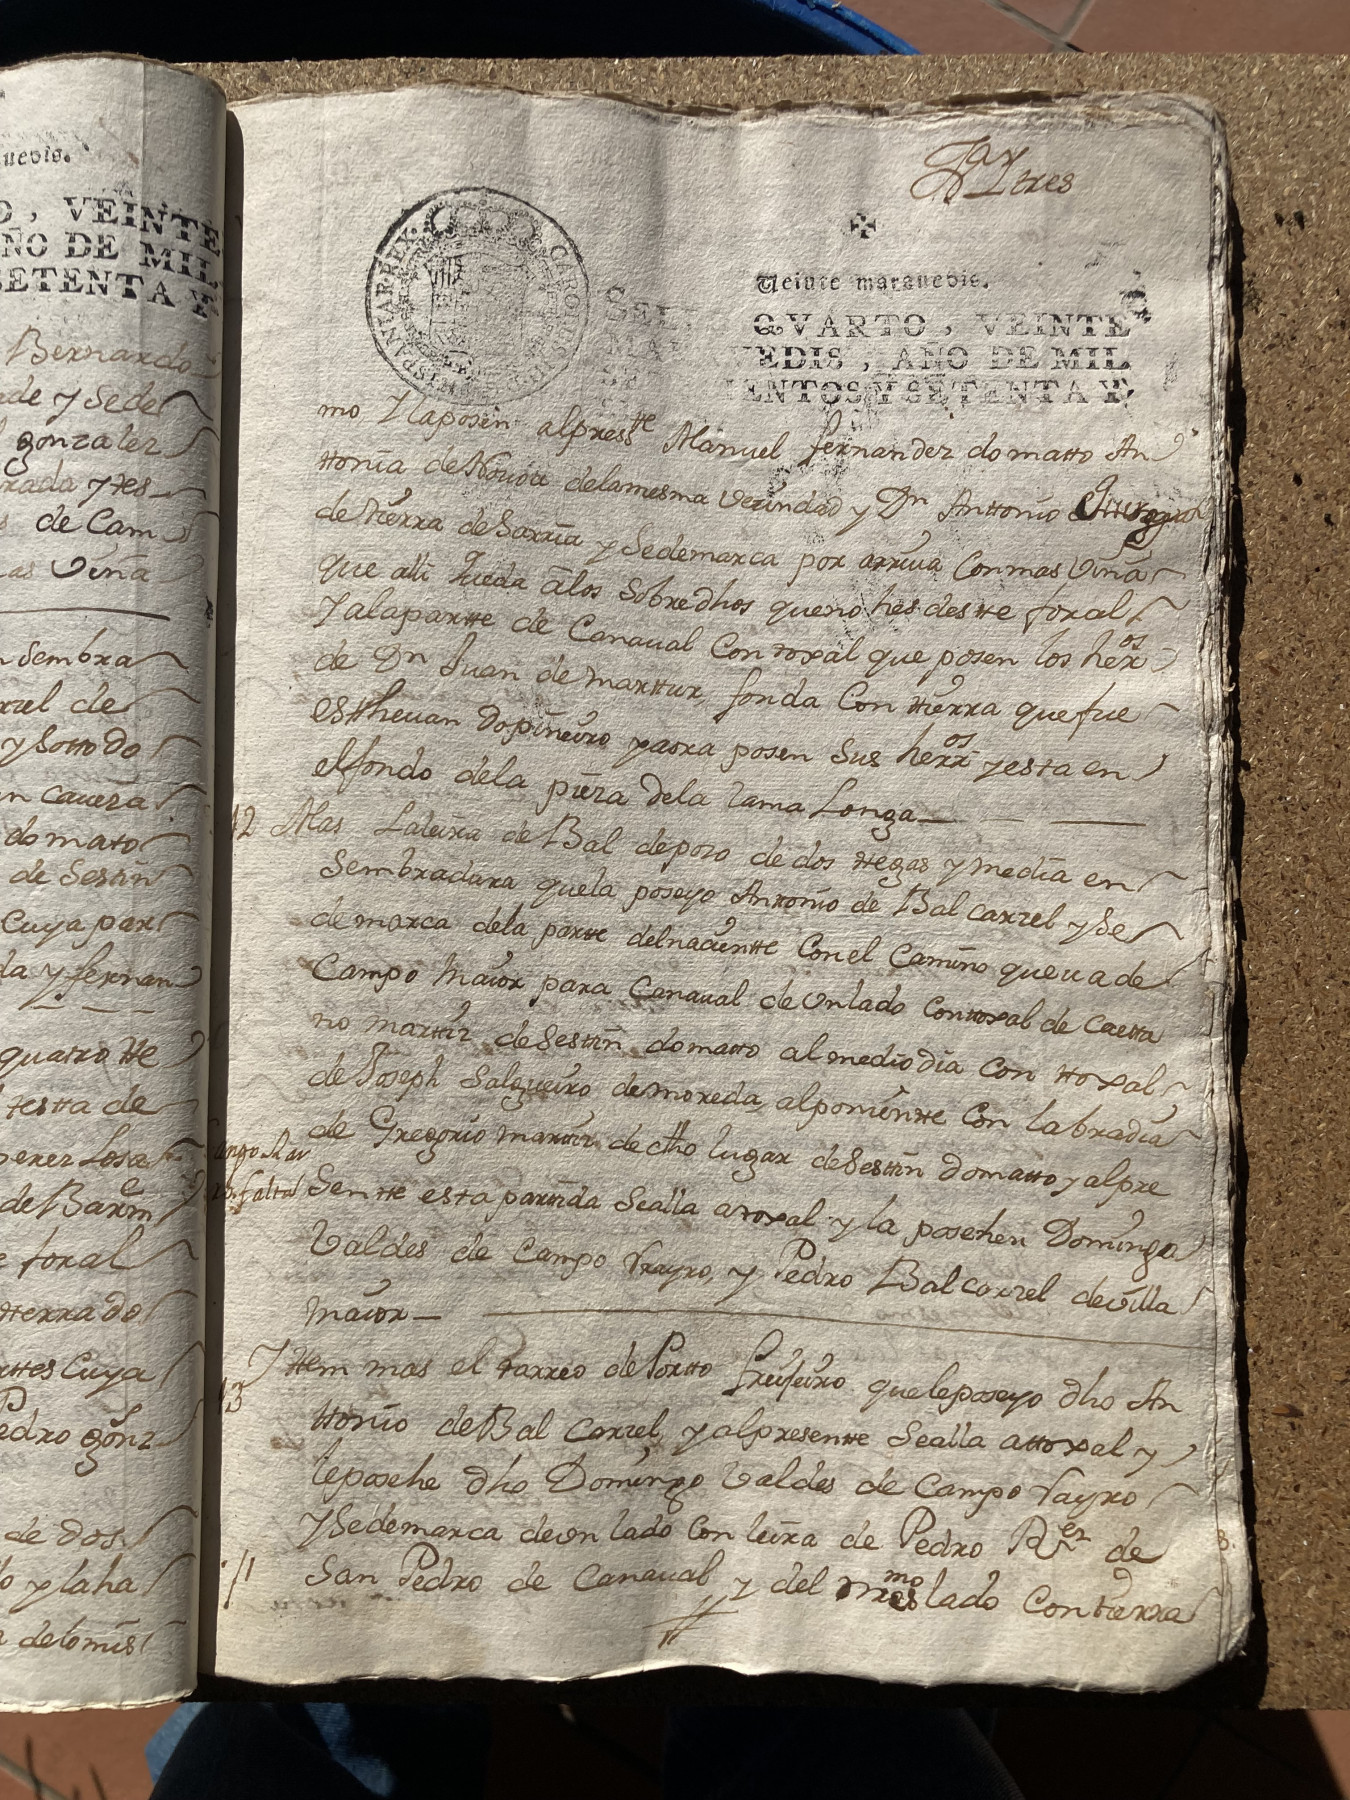 uevis.
O, VEINTE
ÑO DE MIL
SETENTA Y
Bernardo
ade y Sede
gonzalez
rada y tes
de Cam
as Viña
n Sembra
rrel de
y Sotto do
n cavera
do mato
de Sestin
Cuya par
da y fernan
quatro tte
testta de
perez Losa
de Barm
e foral
tterra do
rttes Cuya
Pedro gonz
de dos
o y laha
a delomis
tres
Veinte maravedis.
SELLO QVARTO, VEINTE
MARAVEDIS, AÑO DE MIL
SETECIENTOS Y SETENTA Y
CAROLUS HISPANIAR. REX.
mo y la posen alpresstte Manuel fernandez do matto An
ttonia de Novoa delamesma vecindad y Dn Anttonio
de tierra de Sarria y Sedemarca por arriva Conmas viña
que alli queda a los Sobredhos queno hes destte foral
Y alapartte de Canaval Con toxal que posen los herros
de Dn Juan de marttur, fonda Con tierra que fue
estthevan dopiñeiro yaora posen Sus herros yesta en
elfondo dela pieza dela Rama Longa
12 Mas Laleira de Bal depozo de dos ttegas y media en
Sembradura quela poseyo Antonio de Bal carzel y Se
demarca dela partte delnacientte Conel Camino queva de
Campo Maior para Canaval deunlado Conttoxal de Caetta
no marttiz de Sesttin domatto al mediodia Con ttoxal
de Joseph Salgueiro demoreda, alponientte Con labradia
de Gregorio martiz de dho lugar deSesttin Domatto yalpre
Sentte esta partida Sealla atoxal y la posehen Domingo
Valdes de Campo Vrayro, y Pedro Balcarzel devilla
maior
13 Yttem mas el tarreo de Portto que leposeyo dho An
ttonio de Bal Carzel, y alpresentte Sealla attoxal y
leposehe dho Domingo Valdes de Campo Vayro
y Sedemarca deun lado Con leira de Pedro Rez de
San Pedro de Canaval y del mo lado Con tierra